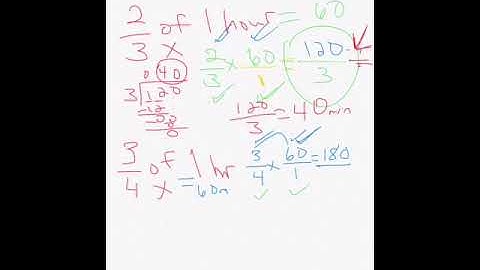 2/3 of 1 hour = 60
x
2/3 x 60/1 = 120/3 =
40
3)120
-12
00
0
120/3 = 40min
3/4 of 1 hr
x = 60m
3/4 x 60/1 = 180